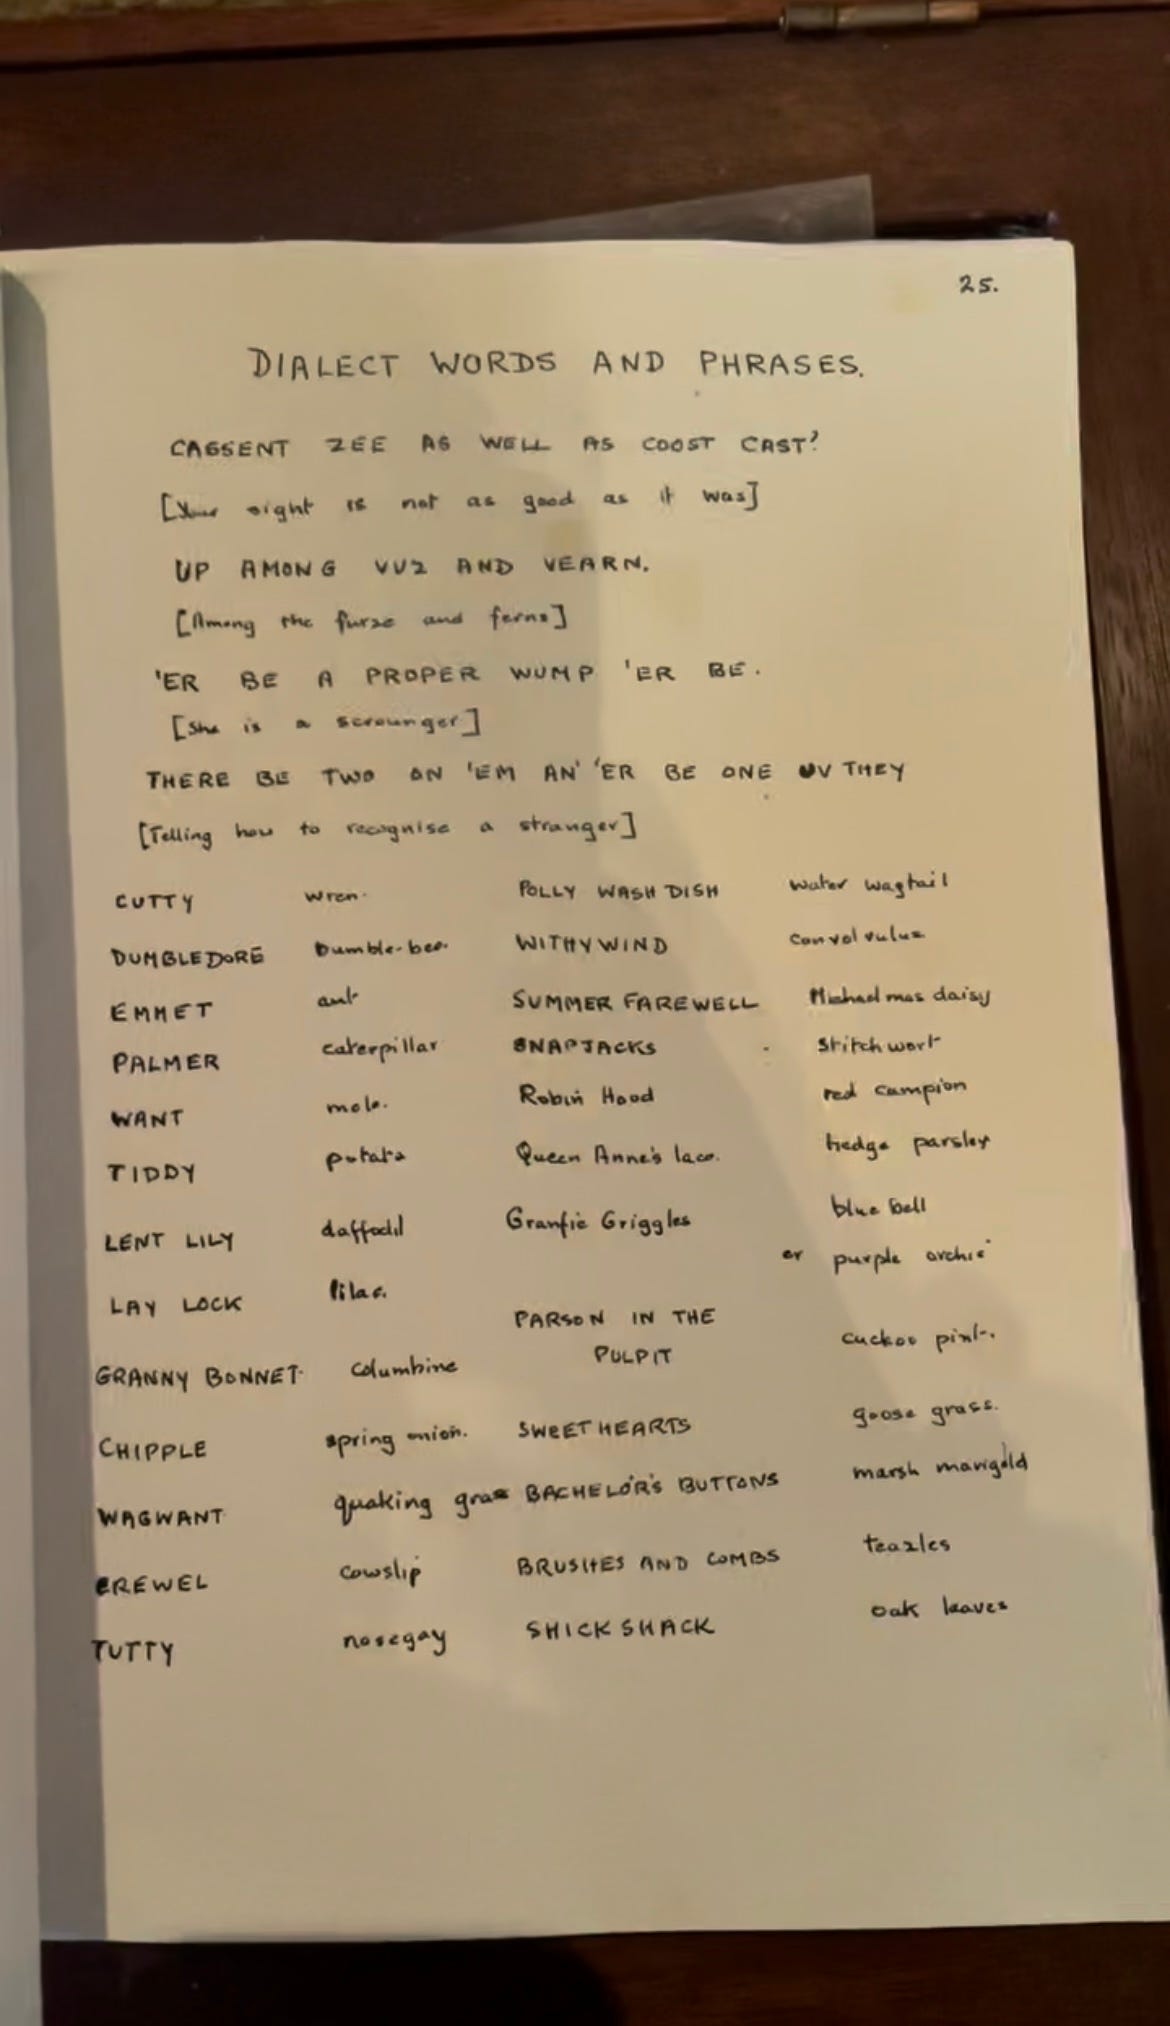 25.
DIALECT WORDS AND PHRASES.
CASSENT ZEE AS WELL AS COOST CAST?
[Your sight is not as good as it was]
UP AMONG VUZ AND VEARN.
[Among the furze and ferns]
'ER BE A PROPER WUMP 'ER BE.
[She is a scrounger]
THERE BE TWO ON 'EM AN' 'ER BE ONE UV THEY
[Telling how to recognise a stranger]
CUTTY wren. POLLY WASH DISH water wagtail
DUMBLEDORE Bumble-bee. WITHYWIND convolvulus
EMMET ant SUMMER FAREWELL Michaelmas daisy
PALMER caterpillar SNAPJACKS stitchwort
WANT mole. Robin Hood red campion
TIDDY potato Queen Anne's lace. hedge parsley
LENT LILY daffodil Granfie Griggles blue bell
or purple orchis
LAY LOCK lilac.
PARSON IN THE
PULPIT cuckoo pint.
GRANNY BONNET columbine
CHIPPLE spring onion. SWEETHEARTS goose grass.
WAGWANT quaking grass BACHELOR'S BUTTONS marsh marigold
CREWEL cowslip BRUSHES AND COMBS teazles
TUTTY nosegay SHICK SHACK oak leaves